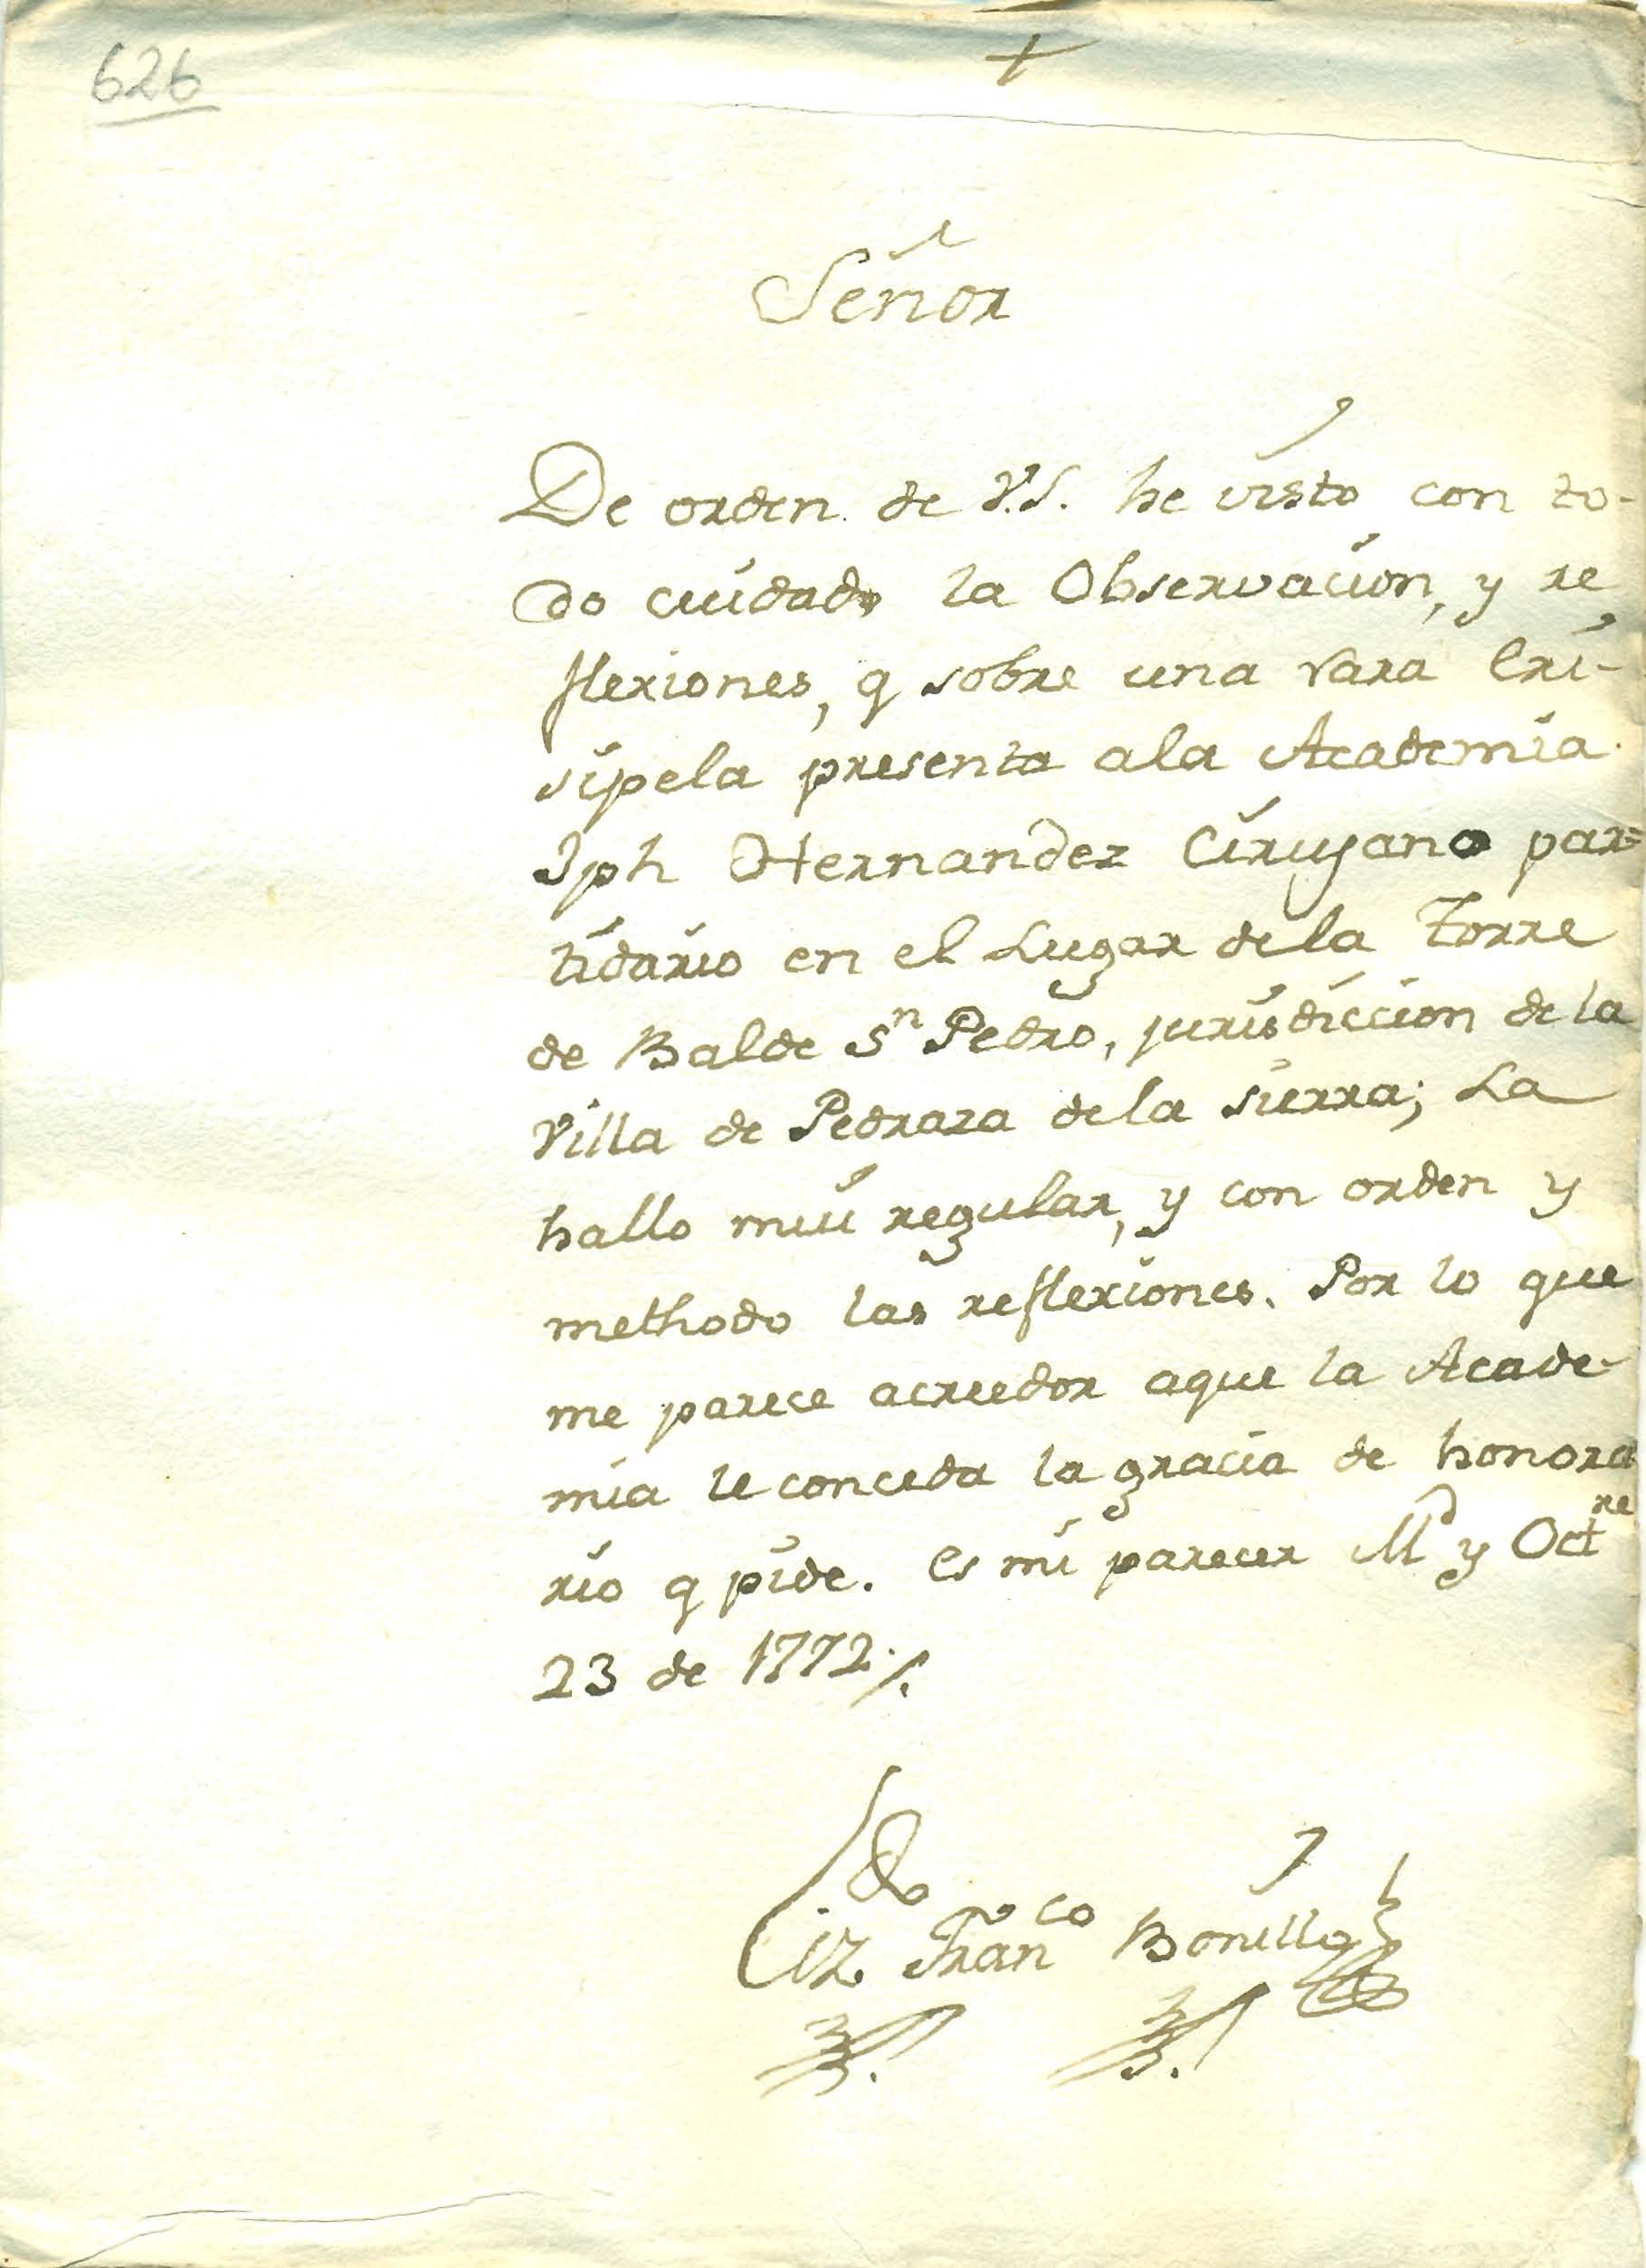 626
+
Señor
De orden de V.S. he visto con to-
do cuidado la Observacion, y re
flexiones, q sobre una rara Eri-
sipela presenta ala Academia
Jph Hernandez Cirujano par=
tidario en el Lugar dela Torre
de Balde Sn Pedro, jurisdiccion de la
Villa de Pedraza dela sierra; La
hallo mui regular, y con orden y
methodo las reflexiones. Por lo que
me parece acreedor aque la Acade-
mia le conceda la gracia de honora
rio q pide. Es mi parecer Md y Octre
23 de 1772./.
Liz.do Franco Bonillo